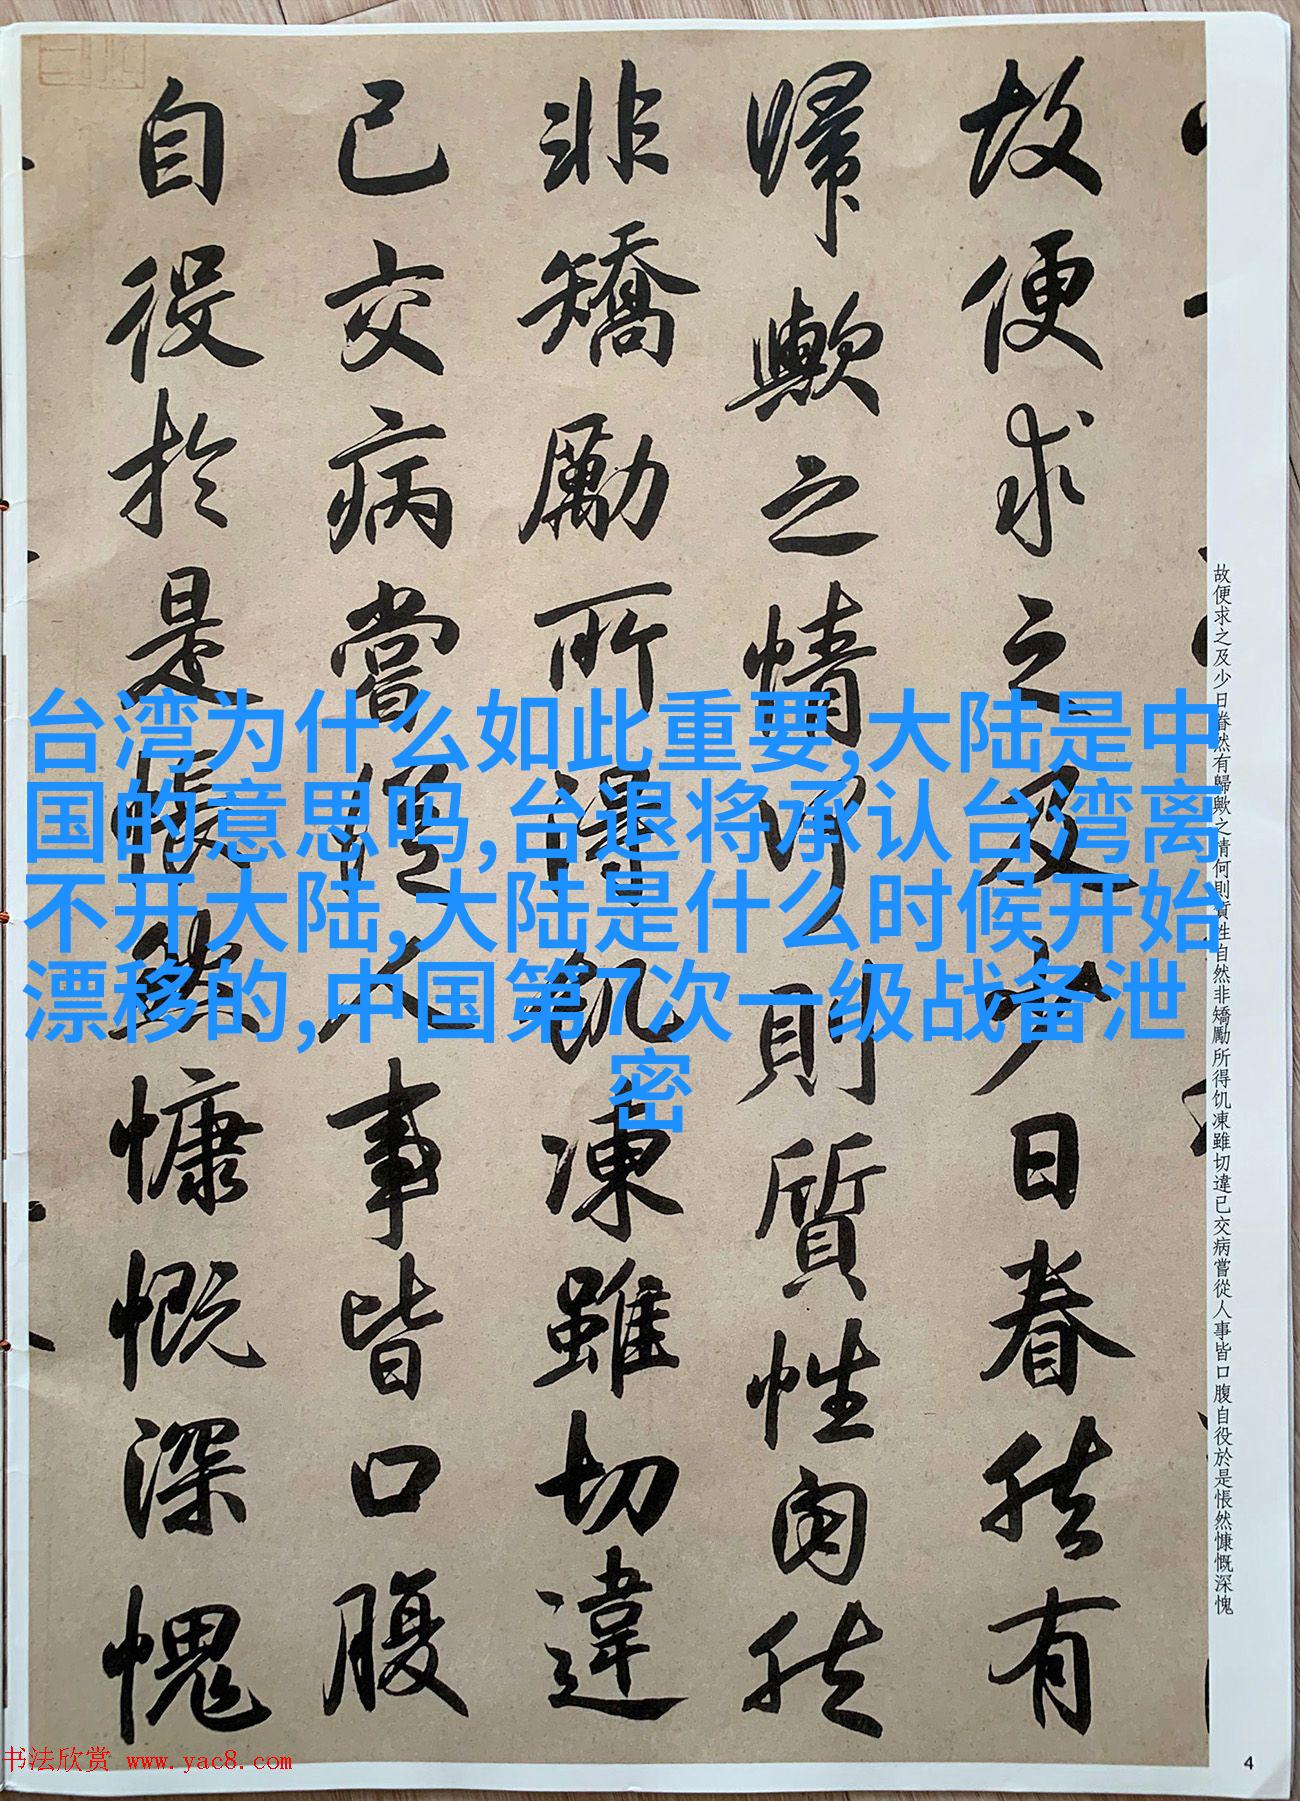 故便求之及少日眷然有歸歟之情何則質性自然非矯勵所得饥凍雖切違已交病嘗從人事皆口腹自役於是悵然慷慨深愧
故便求之及少日眷然有
歸歟之情何則質性自然
非矯勵所得飢凍雖切違
已交病嘗從人事皆口腹
自役於是悵然慷慨深愧
台湾为什么如此重要,大陆是中
国的意思吗,台退将承认台湾离
不开大陆,大陆是什么时候开始
漂移的,中国第7次一级战备泄
密
书法欣赏 www.yac8.com
4